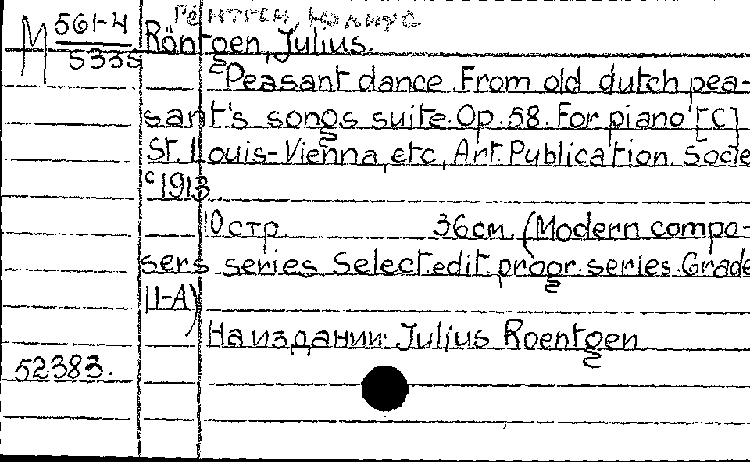 Рентген, Юлиус
М 561-4
5335
Röntgen, Julius.
Peasant dance. From old dutch pea-
sant's songs suite. Op. 58. For piano [C]
St. Louis-Vienna, etc, Art Publication Socie
c 1913
10 стр. 36 см. (Modern compo-
sers series. Select. edit. progr. series. Grade
II-A)
На издании: Julius Roentgen
52383.